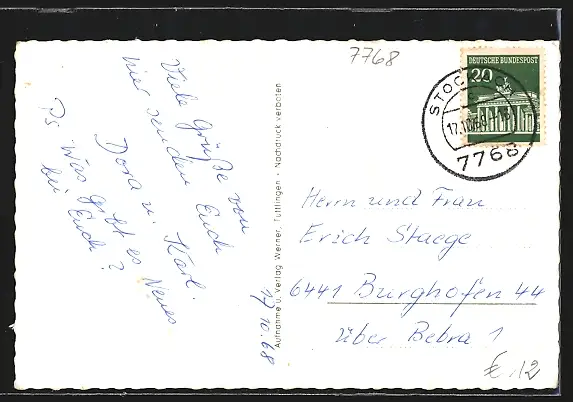 Viele Grüße von
hier senden Euch
Dora u. Karl.
Ps Was gibt es Neues
bei Euch?
17.10.68
Aufnahme u. Verlag Werner, Tuttlingen · Nachdruck verboten
7768
DEUTSCHE BUNDESPOST
20
STOCKACH
17.10.68
7768
Herrn und Frau
Erich Staege
6441 Burghofen 44
über Bebra 1
€ 12